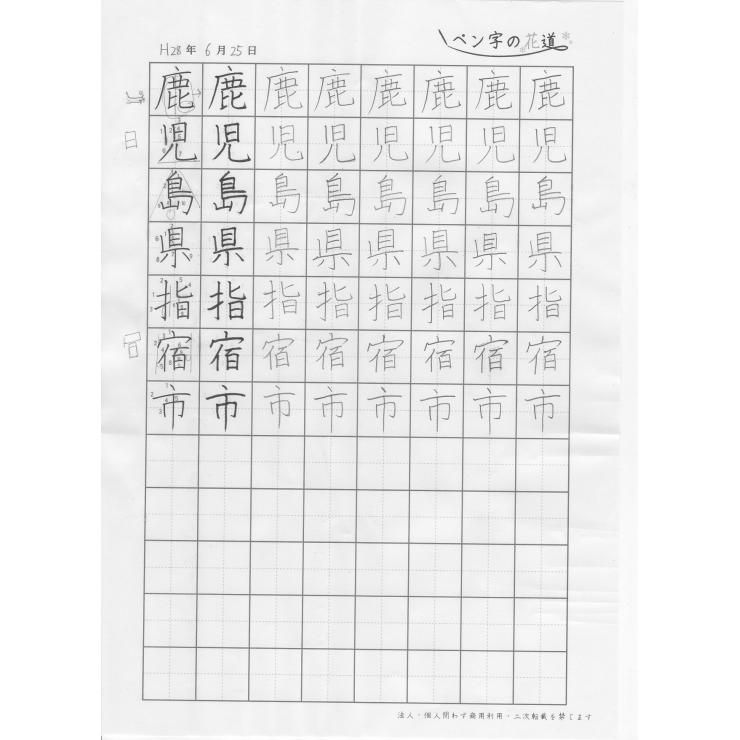 ペン字の花道
H28年 6月25日
鹿 鹿 鹿 鹿 鹿 鹿 鹿 鹿
児 児 児 児 児 児 児 児
島 島 島 島 島 島 島 島
県 県 県 県 県 県 県 県
指 指 指 指 指 指 指 指
宿 宿 宿 宿 宿 宿 宿 宿
市 市 市 市 市 市 市 市
法人・個人問わず商用利用・二次転載を禁じます